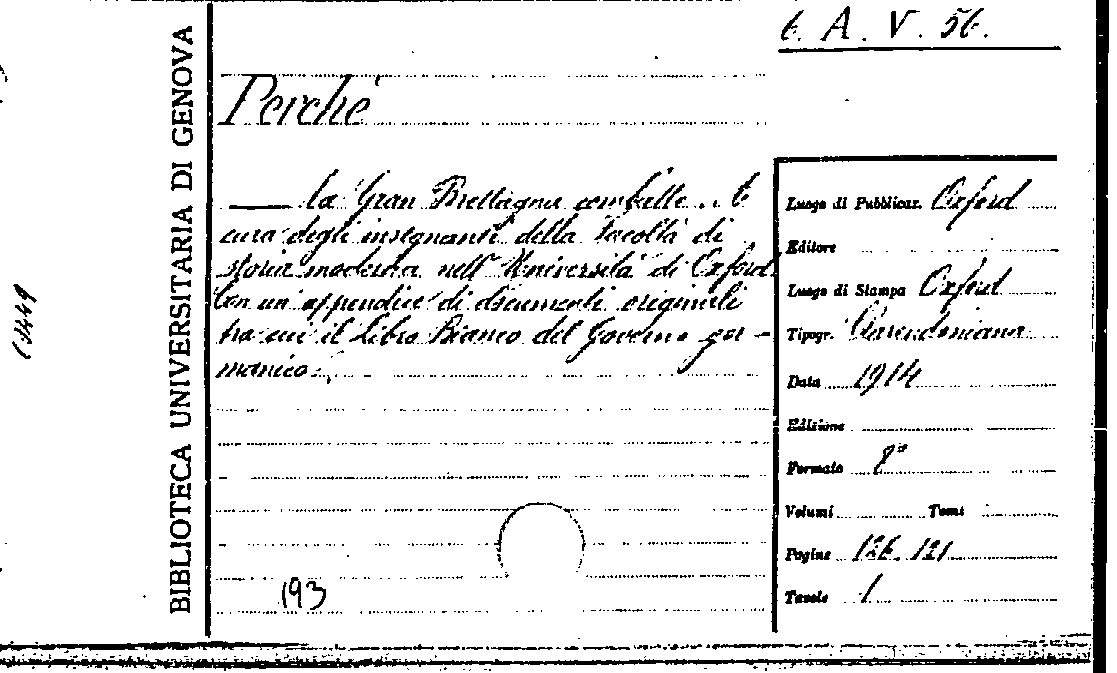 6. A. V. 56.
BIBLIOTECA UNIVERSITARIA DI GENOVA
Perché
la Gran Brettagna combatte. A
cura degli insegnanti della Facoltà di
storia moderna nell' Università di Oxford.
Con un' appendice di documenti originali
tra cui il Libro Bianco del Governo ger-
manico.
193
Luogo di Pubblicaz. Oxford
Editore
Luogo di Stampa Oxford
Tipogr. Clarendoniana
Data 1914
Edizione
Formato 8°
Volumi Tomi
Pagine 126. 121
Tavole 1